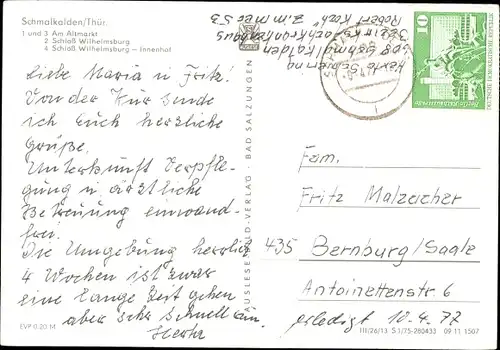 Schmalkalden/Thür.
1 und 3 Am Altmarkt
2 Schloß Wilhelmsburg
4 Schloß Wilhelmsburg - Innenhof
Liebe Maria u Fritz!
Von der Kur sende
ich Euch herzliche
Grüße.
Unterkunft Verpfle-
gung u ärztliche
Betreuung einwand-
frei.
Die Umgebung herrlich
4 Wochen ist zwar
eine lange Zeit gehen
aber sehr schnell rum.
Herta
EVP 0,20 M
AUSLESE-BILD-VERLAG · BAD SALZUNGEN
Herta
608 Schmalkalden
Bezirksfachkrankenhaus
"Robert Koch" Zimmer 53
10
Fam.
Fritz Malzacher
435 Bernburg/Saale
Antoinettenstr. 6
erledigt 10.4.77
III/26/13 S 1/75-280433 09 11 1507